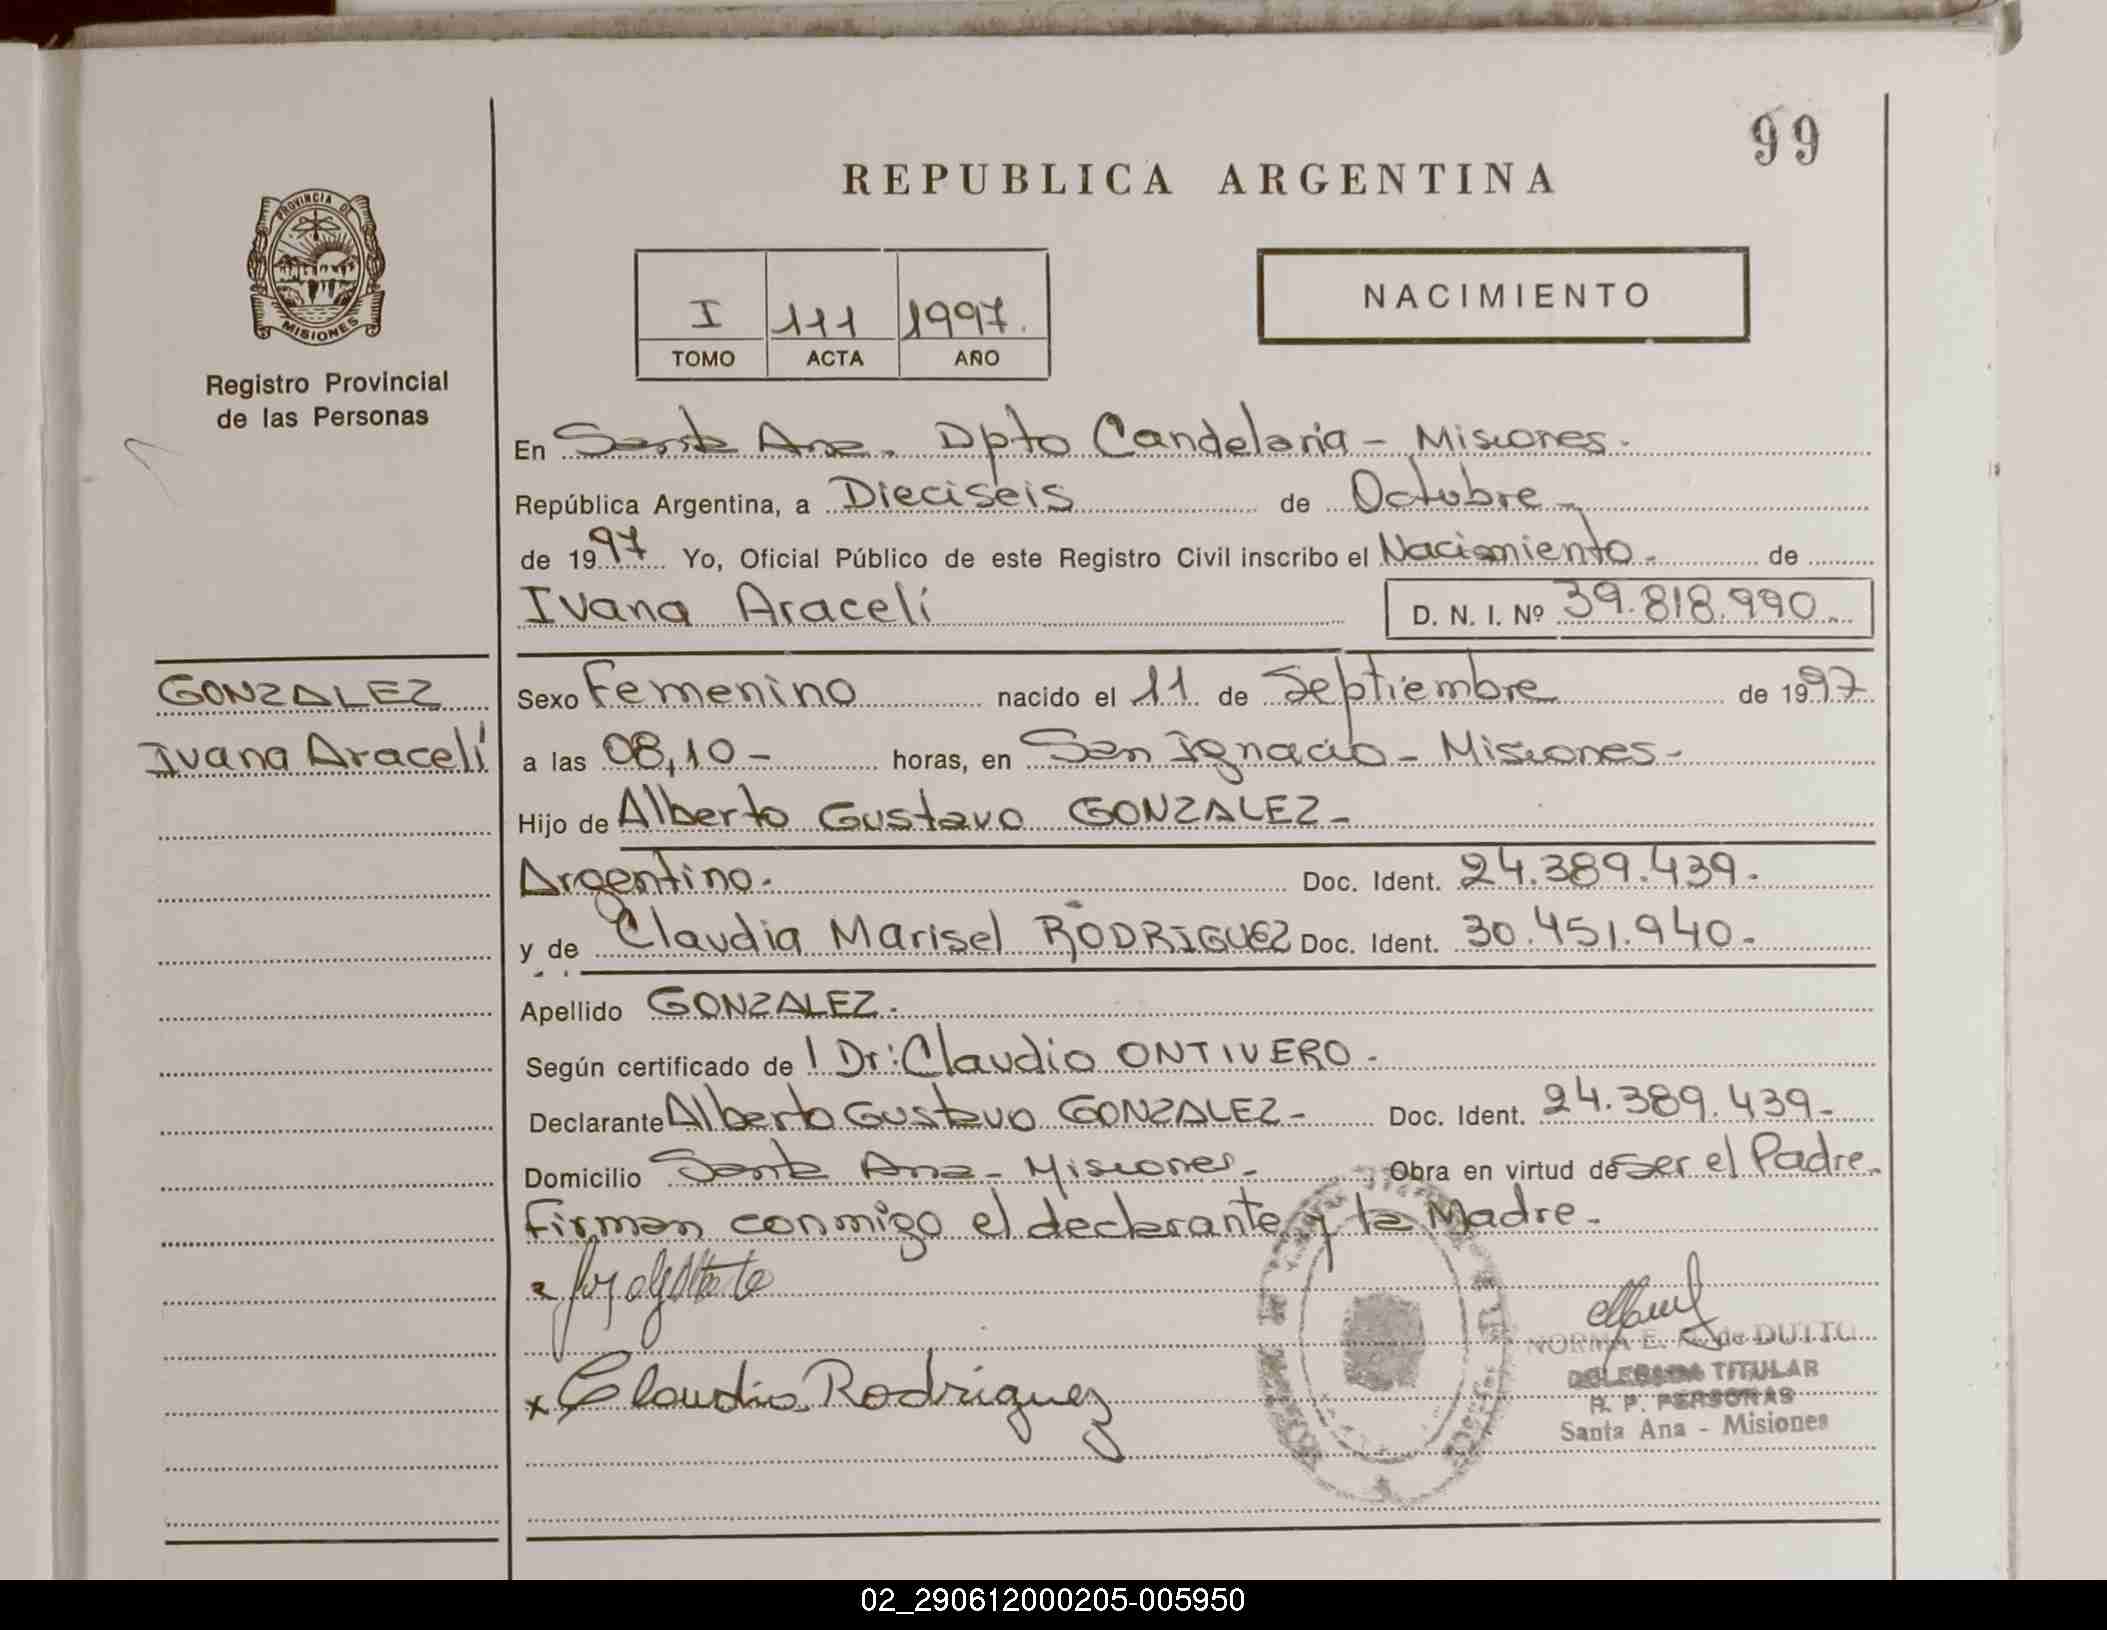 99
REPUBLICA ARGENTINA
PROVINCIA DE
MISIONES
Registro Provincial
de las Personas
I 111 1997.
TOMO ACTA AÑO
NACIMIENTO
En Santa Ana. Dpto Candelaria - Misiones.
República Argentina, a Dieciseis de Octubre -
de 1997 Yo, Oficial Público de este Registro Civil inscribo el Nacimiento. de
Ivana Araceli D. N. I. Nº 39.818.990
GONZALEZ
Ivana Araceli
Sexo Femenino nacido el 11 de Septiembre de 1997
a las 08,10 - horas, en San Ignacio - Misiones -
Hijo de Alberto Gustavo GONZALEZ -
Argentino. Doc. Ident. 24.389.439.
y de Claudia Marisel RODRIGUEZ Doc. Ident. 30.451.940.
Apellido GONZALEZ.
Según certificado de l Dr: Claudio ONTIVERO.
Declarante Alberto Gustavo GONZALEZ - Doc. Ident. 24.389.439 -
Domicilio Santa Ana - Misiones - Obra en virtud de ser el Padre.
Firman conmigo el declarante y la Madre.
x Claudia Rodriguez
NORMA E. de DUTTO
DELEGADA TITULAR
R. P. PERSONAS
Santa Ana - Misiones
02_290612000205-005950